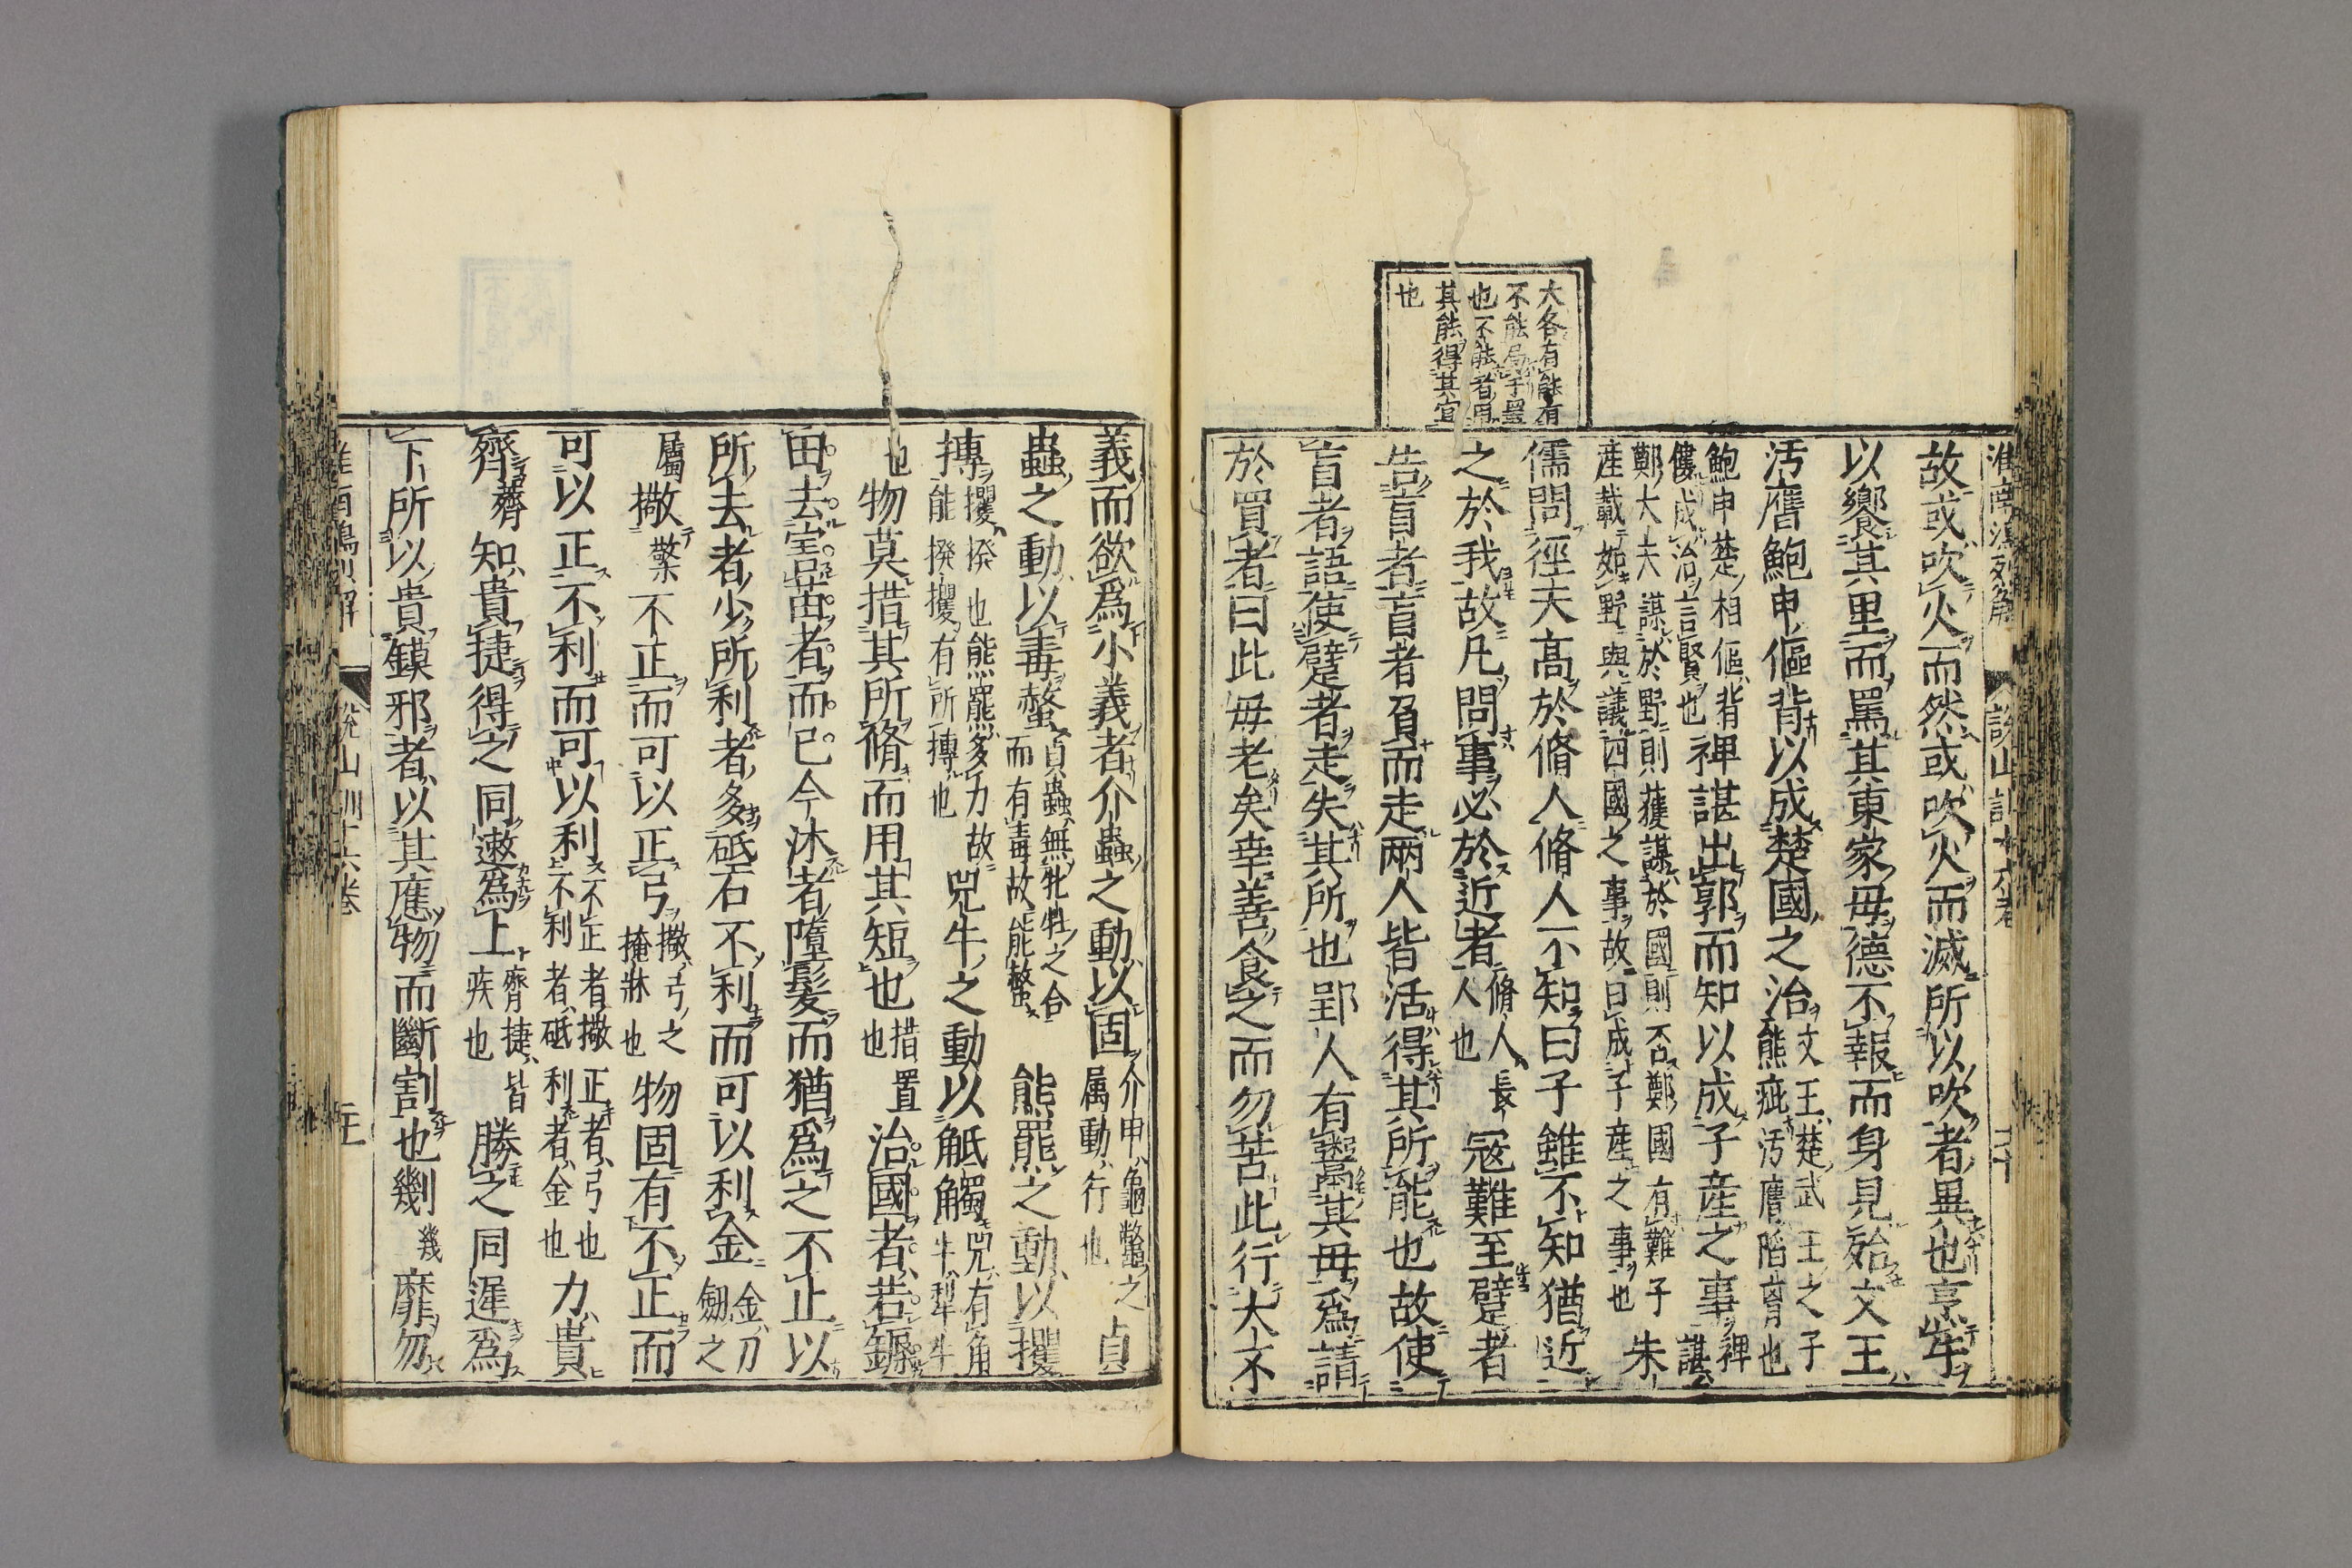 淮南鴻烈解 說山訓十六卷 二十
大各有能有
不能局于器
也不能者用
其能得其宜
也
故或吹火而然或吹火而滅所以吹者異也烹牛
以饗其里而罵其東家母德不報而身見殆文王
污膺鮑申傴背以成楚國之治文王楚武王之子
熊疵污膺陷胷也
鮑申楚相傴背
僂成治言賢也裨諶出郭而知以成子產之事裨諶
鄭大夫謀於野則獲謀於國則否鄭國有難子
產載如野與議四國之事故曰成子產之事也朱
儒問徑天高於脩人脩人不知曰子雖不知猶近
之於我故凡問事必於近者脩人長
人也寇難至躄者
告盲者盲者負而走兩人皆活得其所能也故使
盲者語使躄者走失其所也郢人有鬻其母爲請
於買者曰此母老矣幸善食之而勿苦此行大不
義而欲爲小義者介蟲之動以固介甲龜鱉之
屬動行也貞
蟲之動以毒螫貞蟲無牝牡之合
而有毒故能螫熊羆之動以攫
搏攫撥也熊羆多力故
能撥攫有所搏也兕牛之動以觝觸兕有角
牛犁牛
也物莫措其所脩而用其短也措置
也治國者若鎒
田去害苗者而已今沐者墮髮而猶爲之不止以
所去者少所利者多砥石不利而可以利金金刀
劒之
屬撒檠不正而可以正弓撒弓之
掩牀也物固有不正而
可以正不利而可以利不正者撒正者弓也
不利者砥利者金也力貴
齊薺知貴捷得之同遫爲上齊捷皆
疾也勝之同遲爲
下所以貴鏌邪者以其應物而斷割也劙幾靡勿
淮南鴻烈解 說山訓十六卷